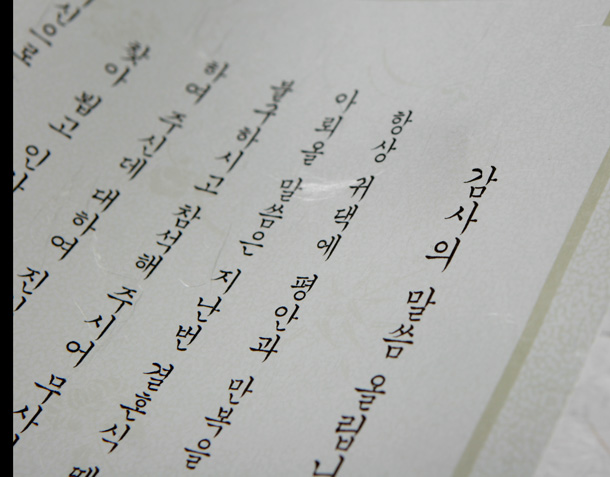 감사의 말씀 올립니
항상 귀댁에 평안과 만복을
아뢰올 말씀은 지난번 결혼식 때
불구하시고 참석해 주시어 무사
하여 주신데 대하여 진
찾아 뵙고 인
신으로